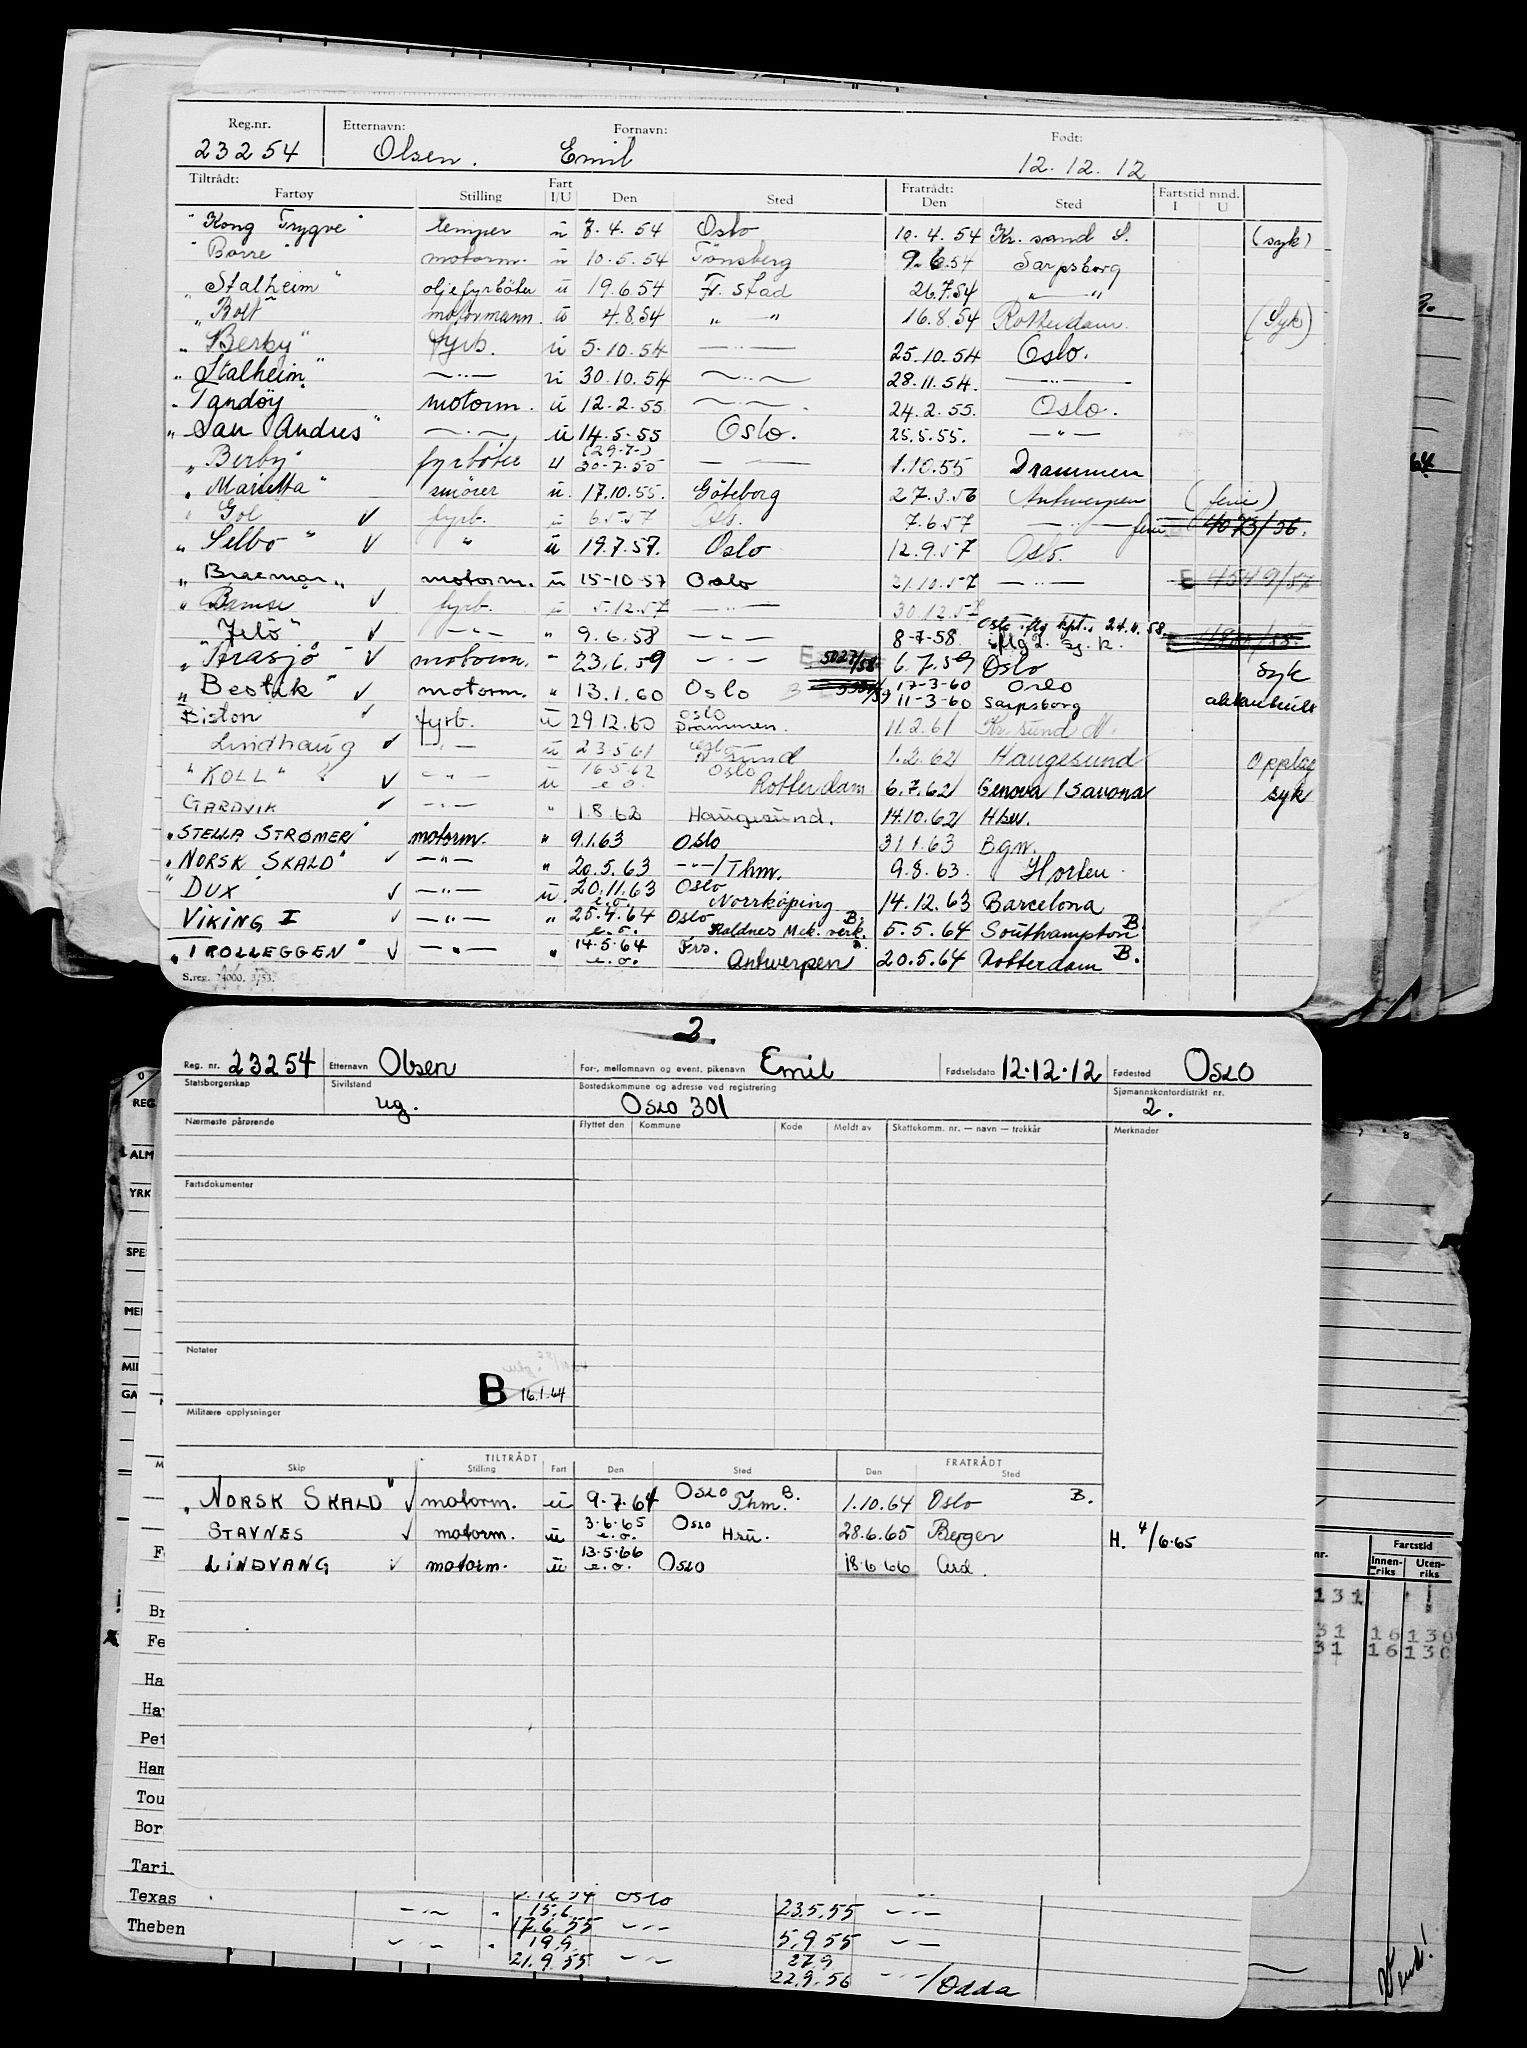 Reg.nr. Etternavn: Fornavn: Født:
23254 Olsen. Emil 12.12.12
Tiltrådt: Fratrådt: Fartstid mnd.
Fartøy Stilling Fart I/U Den Sted Den Sted I U
"Kong Trygve" lemper u 7.4.54 Oslo 10.4.54 Kr. sand S. (syk)
"Borre" motorm. u 10.5.54 Tönsberg 9.6.54 Sarpsborg
"Stalheim" oljefyrböter u 19.6.54 Fr. stad 26.7.54 — " —
"Rolt" motormann. u 4.8.54 " — " 16.8.54 Rotterdam. (Syk)
"Berby" fyrb. u 5.10.54 — " — 25.10.54 Oslo.
"Stalheim" — " — u 30.10.54 — " — 28.11.54. — " —
"Tandöy" motorm. u 12.2.55 — " — 24.2.55. Oslo.
"San Andres" — " — u 14.5.55 Oslo. 25.5.55. — " —
"Berby" fyrböter u (29.7.) 30-7.55 — — 1.10.55 Drammen
"Marietta" smörer u. 17.10.55. Göteborg 27.3.56 Antwerpen (ferie)
"Gol ✓ fyrb. u 6.5.57 Oslo. 7.6.57 — " — ferie 4073/56.
"Selbo" ✓ " u 19.7.57. Oslo 12.9.57 Oslo.
"Braemar" motorm. u 15-10-57 Oslo 31.10.57 — " — E 4549/57
"Bamse" ✓ fyrb. u 5.12.57 — " — 30.12.57
Jelö" ✓ — " — " 9.6.58 — " — 8-7-58 Oslo iflg kpt. 24.11.58. iflg d. sj. k.
"Arasjö" ✓ motorm. " 23.6.59 — " — E 5027/58 6.7.59 Oslo syk
"Bestik" ✓ motorm. " 13.1.60 Oslo 17-3-60 Oslo 11-3-60 Sarpsborg
Biston ✓ fyrb. u 29.12.60 Oslo Drammen. 11.2.61 Kr. sund N.
Lindhaug ✓ — " — u 23.5.61 Oslo sund 1.2.62 Haugesund opplag
"KOLL" ✓ — " — u 16.5.62 e.o. Oslo Rotterdam 6.7.62 Genova / Savona syk
GARDVIK ✓ — " — " 1.8.62 Haugesund. 14.10.62 Hsv.
"STELLA STRØMER" motorm. " 9.1.63 Oslo 31.1.63 Bgn.
"NORSK SKALD" ✓ — " — " 20.5.63 — " —/Thm. 9.8.63. Horten
"DUX" ✓ — " — u. 20.11.63 e.o. Oslo Norrköping 14.12.63 Barcelona
VIKING I ✓ — " — " 25.4.64 e.o. Oslo Kaldnes Mek. verk. B. 5.5.64 Southampton B.
"TROLLEGGEN" ✓ — " — " 14.5.64 e.o. Frs. Antwerpen 20.5.64 Rotterdam B.
S.reg. 74000. 3/53.
2.
Reg. nr. 23254 Etternavn Olsen For-, mellomnavn og event. pikenavn Emil Fødselsdato 12.12.12 Fødested OSLO
Statsborgerskap Sivilstand Bostedskommune og adresse ved registrering Sjømannskontordistrikt nr.
ug. OSLO 301 2.
Nærmeste pårørende Flyttet den Kommune Kode Meldt av Skattekomm. nr. — navn — trekkår Merknader
Fartsdokumenter
Notater
B 16.1.64
Militære opplysninger
TILTRÅDT FRATRÅDT
Skip Stilling Fart Den Sted Den Sted
"NORSK SKALD" ✓ motorm. u 9.7.64 OSLO Thm. B. 1.10.64 Oslo B.
STAVNES ✓ motorm. u 3.6.65 e.o. Oslo Hsu. 28.6.65 Bergen H. 4/6.65
LINDVANG ✓ motorm. u 13.5.66 e.o. Oslo 18.6.66 Ard.
0
REG
ALM
YRK
SPE
MEI
MIL
GA
Br
Fe
Ha
Hav
Pet
Ham
Tou
Bor
Tari
Texas
Theben
Oslo
15.6 23.5.55 — " —
17.6.55 — " —
19.9. 5.9.55 — " —
21.9.55 — " — 27.9
22.9.56 — " —/Odda
nr. Fartstid
Innen-riks Uten-riks
131
31 16 130
31 16 130
Vend!